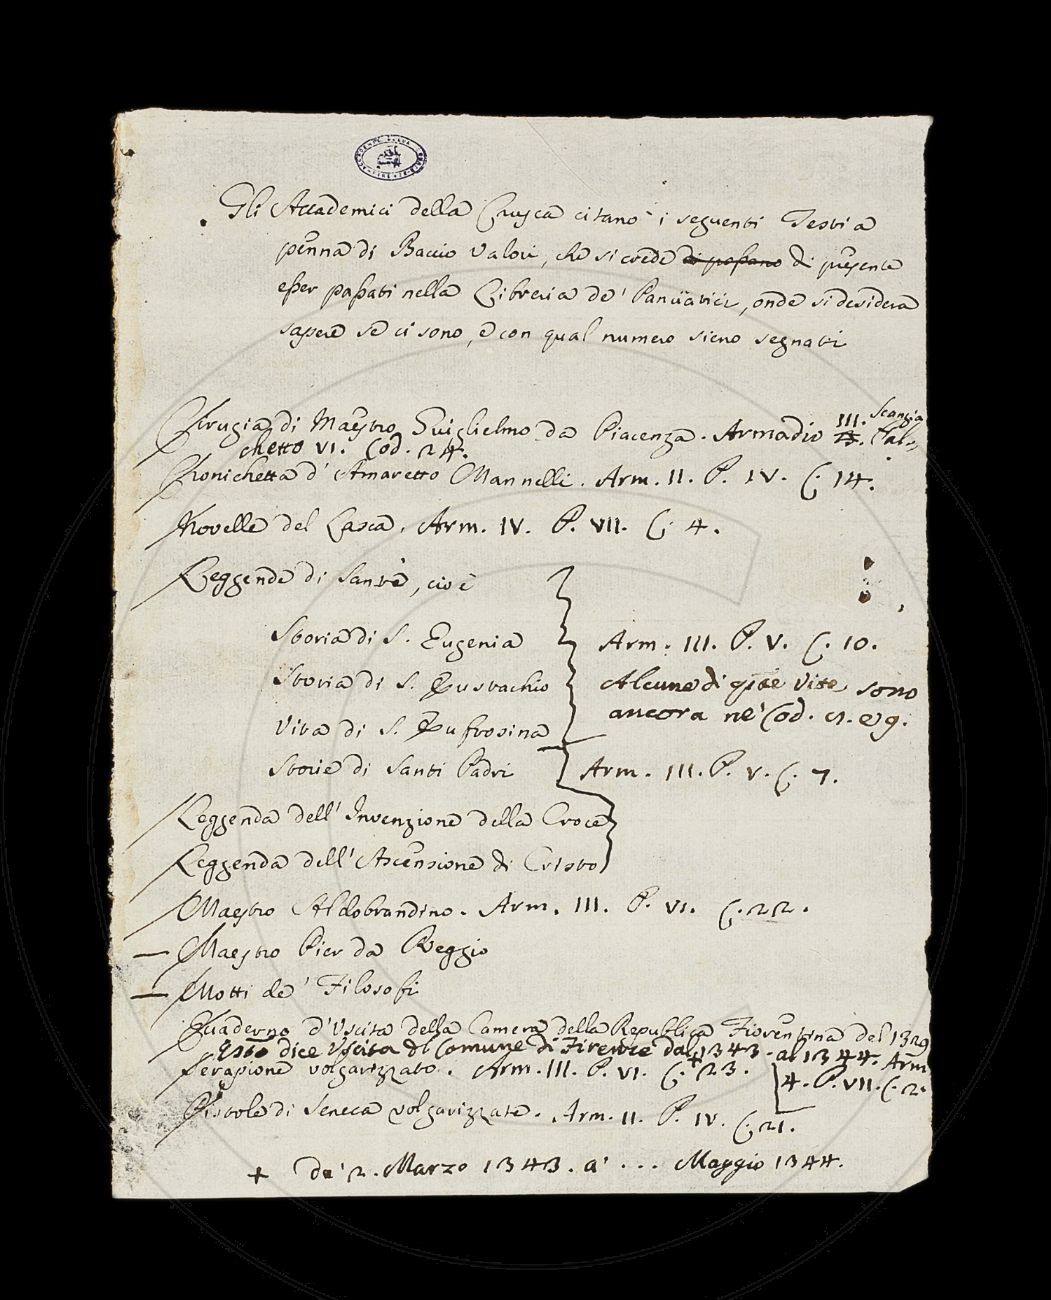 Gli Accademici della Crusca citano i seguenti Testi a
penna di Baccio Valori, che si crede di possano di presente
esser passati nella Libreria de' Panciatici, onde si desidera
sapere se ci sono, e con qual numero sieno segnati
Cirugia di Maestro Guiglielmo da Piacenza. Armadio III. Scanzia
chetto VI. Cod. 24.
Cronichetta d'Amaretto Mannelli. Arm. II. P. IV. C. 14.
Novelle del Lasca. Arm. IV. P. VII. C. 4.
Leggende di Sante, cioè
Storia di S. Eugenia
Storia di S. Eustachio
Vita di S. Eufrosina
Storie di Santi Padri
Arm. III. P. V. C. 10.
Alcune di queste Vite sono
ancora ne' Cod. e 9.
Arm. III. P. V. C. 7.
Leggenda dell'Invenzione della Croce
Leggenda dell'Ascensione di Cristo
Maestro Aldobrandino. Arm. III. P. VI. C. 22.
— Maestro Pier da Reggio
— Motti de' Filosofi
Quaderno d'Uscita della Camera della Repubblica Fiorentina del 1329
Esso dice Uscita di Comune di Firenze dal + 1343. al 1344. Arm
4. P. VII. C. 2.
Serapione volgarizzato. Arm. III. P. VI. C. 23.
Pistole di Seneca volgarizzate. Arm. II. P. IV. C. 21.
+ da' 2. Marzo 1343. a' ... Maggio 1344.